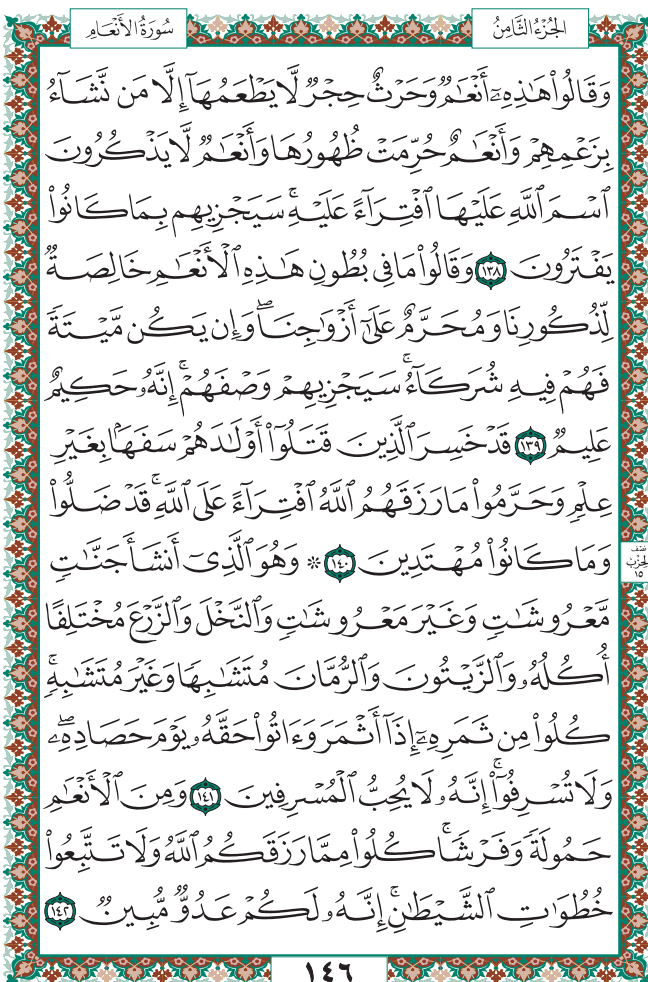 الجُزْءُ الثَّامِنُ
سُورَةُ الأَنْعَام
وَقَالُوا۟ هَـٰذِهِۦٓ أَنْعَـٰمٌ وَحَرْثٌ حِجْرٌ لَّا يَطْعَمُهَآ إِلَّا مَن نَّشَآءُ
بِزَعْمِهِمْ وَأَنْعَـٰمٌ حُرِّمَتْ ظُهُورُهَا وَأَنْعَـٰمٌ لَّا يَذْكُرُونَ
ٱسْمَ ٱللَّهِ عَلَيْهَا ٱفْتِرَآءً عَلَيْهِۚ سَيَجْزِيهِم بِمَا كَانُوا۟
يَفْتَرُونَ ١٣٨ وَقَالُوا۟ مَا فِى بُطُونِ هَـٰذِهِ ٱلْأَنْعَـٰمِ خَالِصَةٌ
لِّذُكُورِنَا وَمُحَرَّمٌ عَلَىٰٓ أَزْوَٰجِنَاۖ وَإِن يَكُن مَّيْتَةً
فَهُمْ فِيهِ شُرَكَآءُۚ سَيَجْزِيهِمْ وَصْفَهُمْۚ إِنَّهُۥ حَكِيمٌ
عَلِيمٌ ١٣٩ قَدْ خَسِرَ ٱلَّذِينَ قَتَلُوٓا۟ أَوْلَـٰدَهُمْ سَفَهًۢا بِغَيْرِ
عِلْمٍ وَحَرَّمُوا۟ مَا رَزَقَهُمُ ٱللَّهُ ٱفْتِرَآءً عَلَى ٱللَّهِۚ قَدْ ضَلُّوا۟
وَمَا كَانُوا۟ مُهْتَدِينَ ١٤٠ ۞ وَهُوَ ٱلَّذِىٓ أَنشَأَ جَنَّـٰتٍ
نصف الحزب ١٥
مَّعْرُوشَـٰتٍ وَغَيْرَ مَعْرُوشَـٰتٍ وَٱلنَّخْلَ وَٱلزَّرْعَ مُخْتَلِفًا
أُكُلُهُۥ وَٱلزَّيْتُونَ وَٱلرُّمَّانَ مُتَشَـٰبِهًا وَغَيْرَ مُتَشَـٰبِهٍۚ
كُلُوا۟ مِن ثَمَرِهِۦٓ إِذَآ أَثْمَرَ وَءَاتُوا۟ حَقَّهُۥ يَوْمَ حَصَادِهِۦۖ
وَلَا تُسْرِفُوٓا۟ۚ إِنَّهُۥ لَا يُحِبُّ ٱلْمُسْرِفِينَ ١٤١ وَمِنَ ٱلْأَنْعَـٰمِ
حَمُولَةً وَفَرْشًاۚ كُلُوا۟ مِمَّا رَزَقَكُمُ ٱللَّهُ وَلَا تَتَّبِعُوا۟
خُطُوَٰتِ ٱلشَّيْطَـٰنِۚ إِنَّهُۥ لَكُمْ عَدُوٌّ مُّبِينٌ ١٤٢
١٤٦